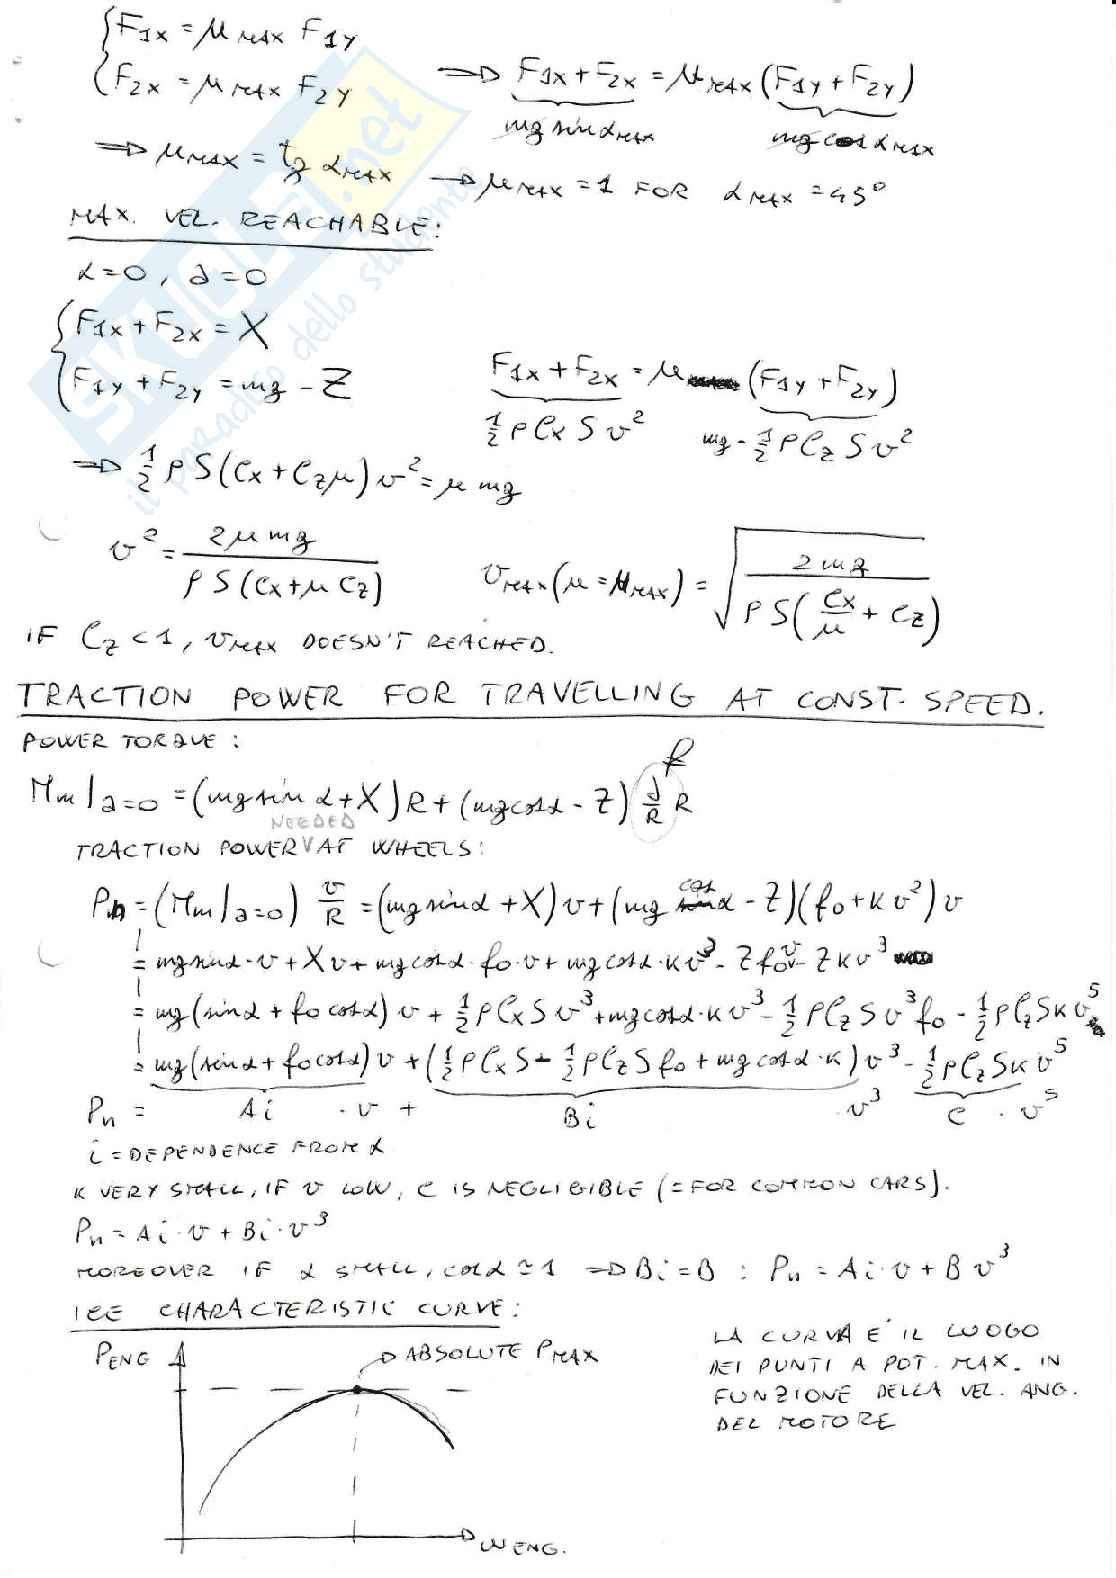 {F1x = μMAX F1y
{F2x = μMAX F2y ⇒ F1x + F2x = μMAX (F1y + F2y)
mg sin αMAX mg cos αMAX
⇒ μMAX = tg αMAX → μMAX = 1 FOR αMAX = 45°
MAX. VEL. REACHABLE:
α = 0, a = 0
{F1x + F2x = X
{F1y + F2y = mg - Z F1x + F2x = μ (F1y + F2y)
½ρCxSv² mg - ½ρCzSv²
⇒ ½ρS(Cx + Czμ)v² = μmg
v² = 2μmg / ρS(Cx + μCz) vMAX(μ = μMAX) = √(2mg / ρS(Cx/μ + Cz))
IF Cz < 1, vMAX DOESN'T REACHED.
TRACTION POWER FOR TRAVELLING AT CONST. SPEED.
POWER TORQUE:
f
Mm|a=0 = (mg sin α + X)R + (mg cos α - Z) d/R R
NEEDED
TRACTION POWER V AT WHEELS:
Pn = (Mm|a=0) v/R = (mg sin α + X)v + (mg cos α - Z)(f0 + Kv²)v
= mg sin α · v + Xv + mg cos α · f0 · v + mg cos α · Kv³ - Zf0v - ZKv³
= mg(sin α + f0 cos α)v + ½ρCxSv³ + mg cos α · Kv³ - ½ρCzSv³f0 - ½ρCzSKv⁵
= mg(sin α + f0 cos α)v + (½ρCxS - ½ρCzSf0 + mg cos α · K)v³ - ½ρCzSKv⁵
Pn = Ai · v + Bi · v³ C · v⁵
i = DEPENDENCE FROM α
K VERY SMALL, IF v LOW, C IS NEGLIGIBLE (= FOR COMMON CARS).
Pn = Ai · v + Bi · v³
MOREOVER IF α SMALL, cos α ≃ 1 ⇒ Bi = B : Pn = Ai · v + Bv³
ICE CHARACTERISTIC CURVE:
PENG
ABSOLUTE PMAX
ωENG.
LA CURVA E' IL LUOGO
DEI PUNTI A POT. MAX. IN
FUNZIONE DELLA VEL. ANG.
DEL MOTORE
SKUOLA.net
il paradiso dello studente